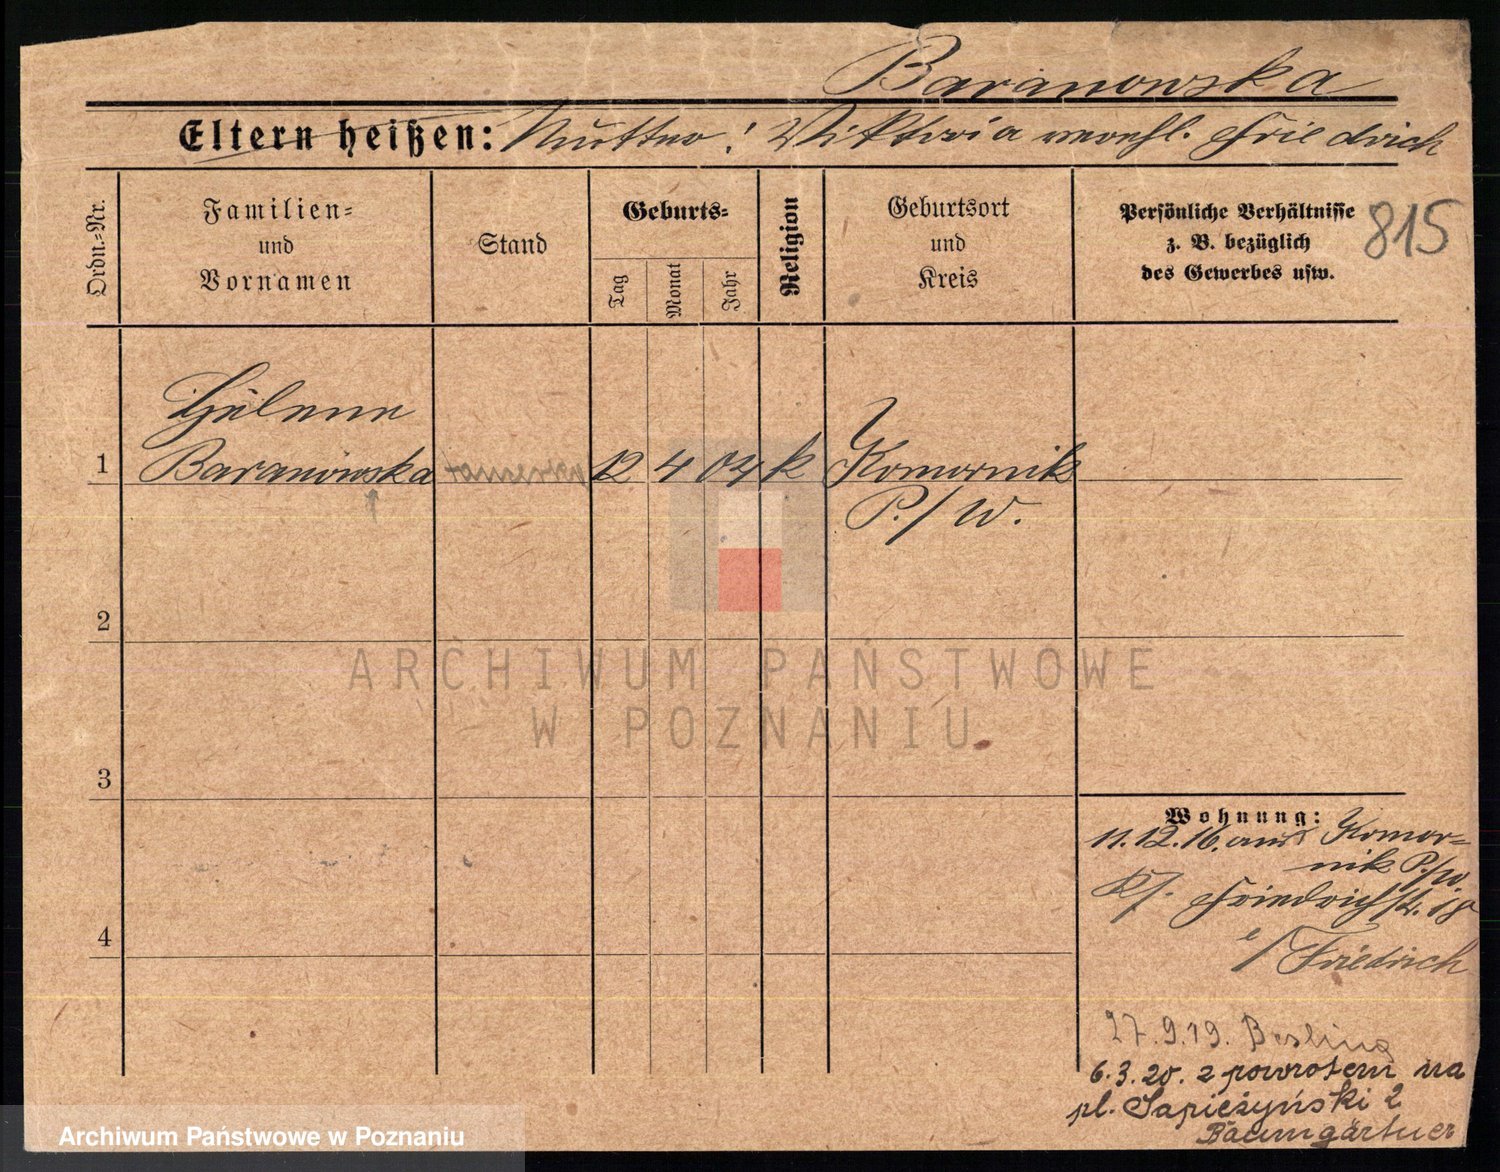 Baranowska
Eltern heißen: Mutter! Viktoria verehl. Friedrich
Ordn.=Nr.
Familien=
und
Vornamen
Stand
Geburts=
Tag
Monat
Jahr
Religion
Geburtsort
und
Kreis
Persönliche Verhältnisse
z. B. bezüglich
des Gewerbes usw.
815
Helene
1 Baranowska 12 4 04 k Komornik
P./W.
2
3
4
ARCHIWUM PAŃSTWOWE
W POZNANIU
Wohnung:
11.12.16. aus Komor=
nik P./W.
Friedrichstr. 18
b/ Friedrich
27.9.19.
6.3.20. z powrotem na
pl. Sapieżyński 2
Baumgärtner
Archiwum Państwowe w Poznaniu